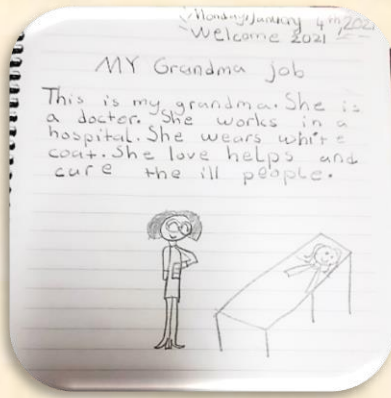 Monday, January 4th, 2021
Welcome 2021
MY Grandma job
This is my grandma. She is
a docter. She works in a
hospital. She wears white
coat. She love helps and
cure the ill people.